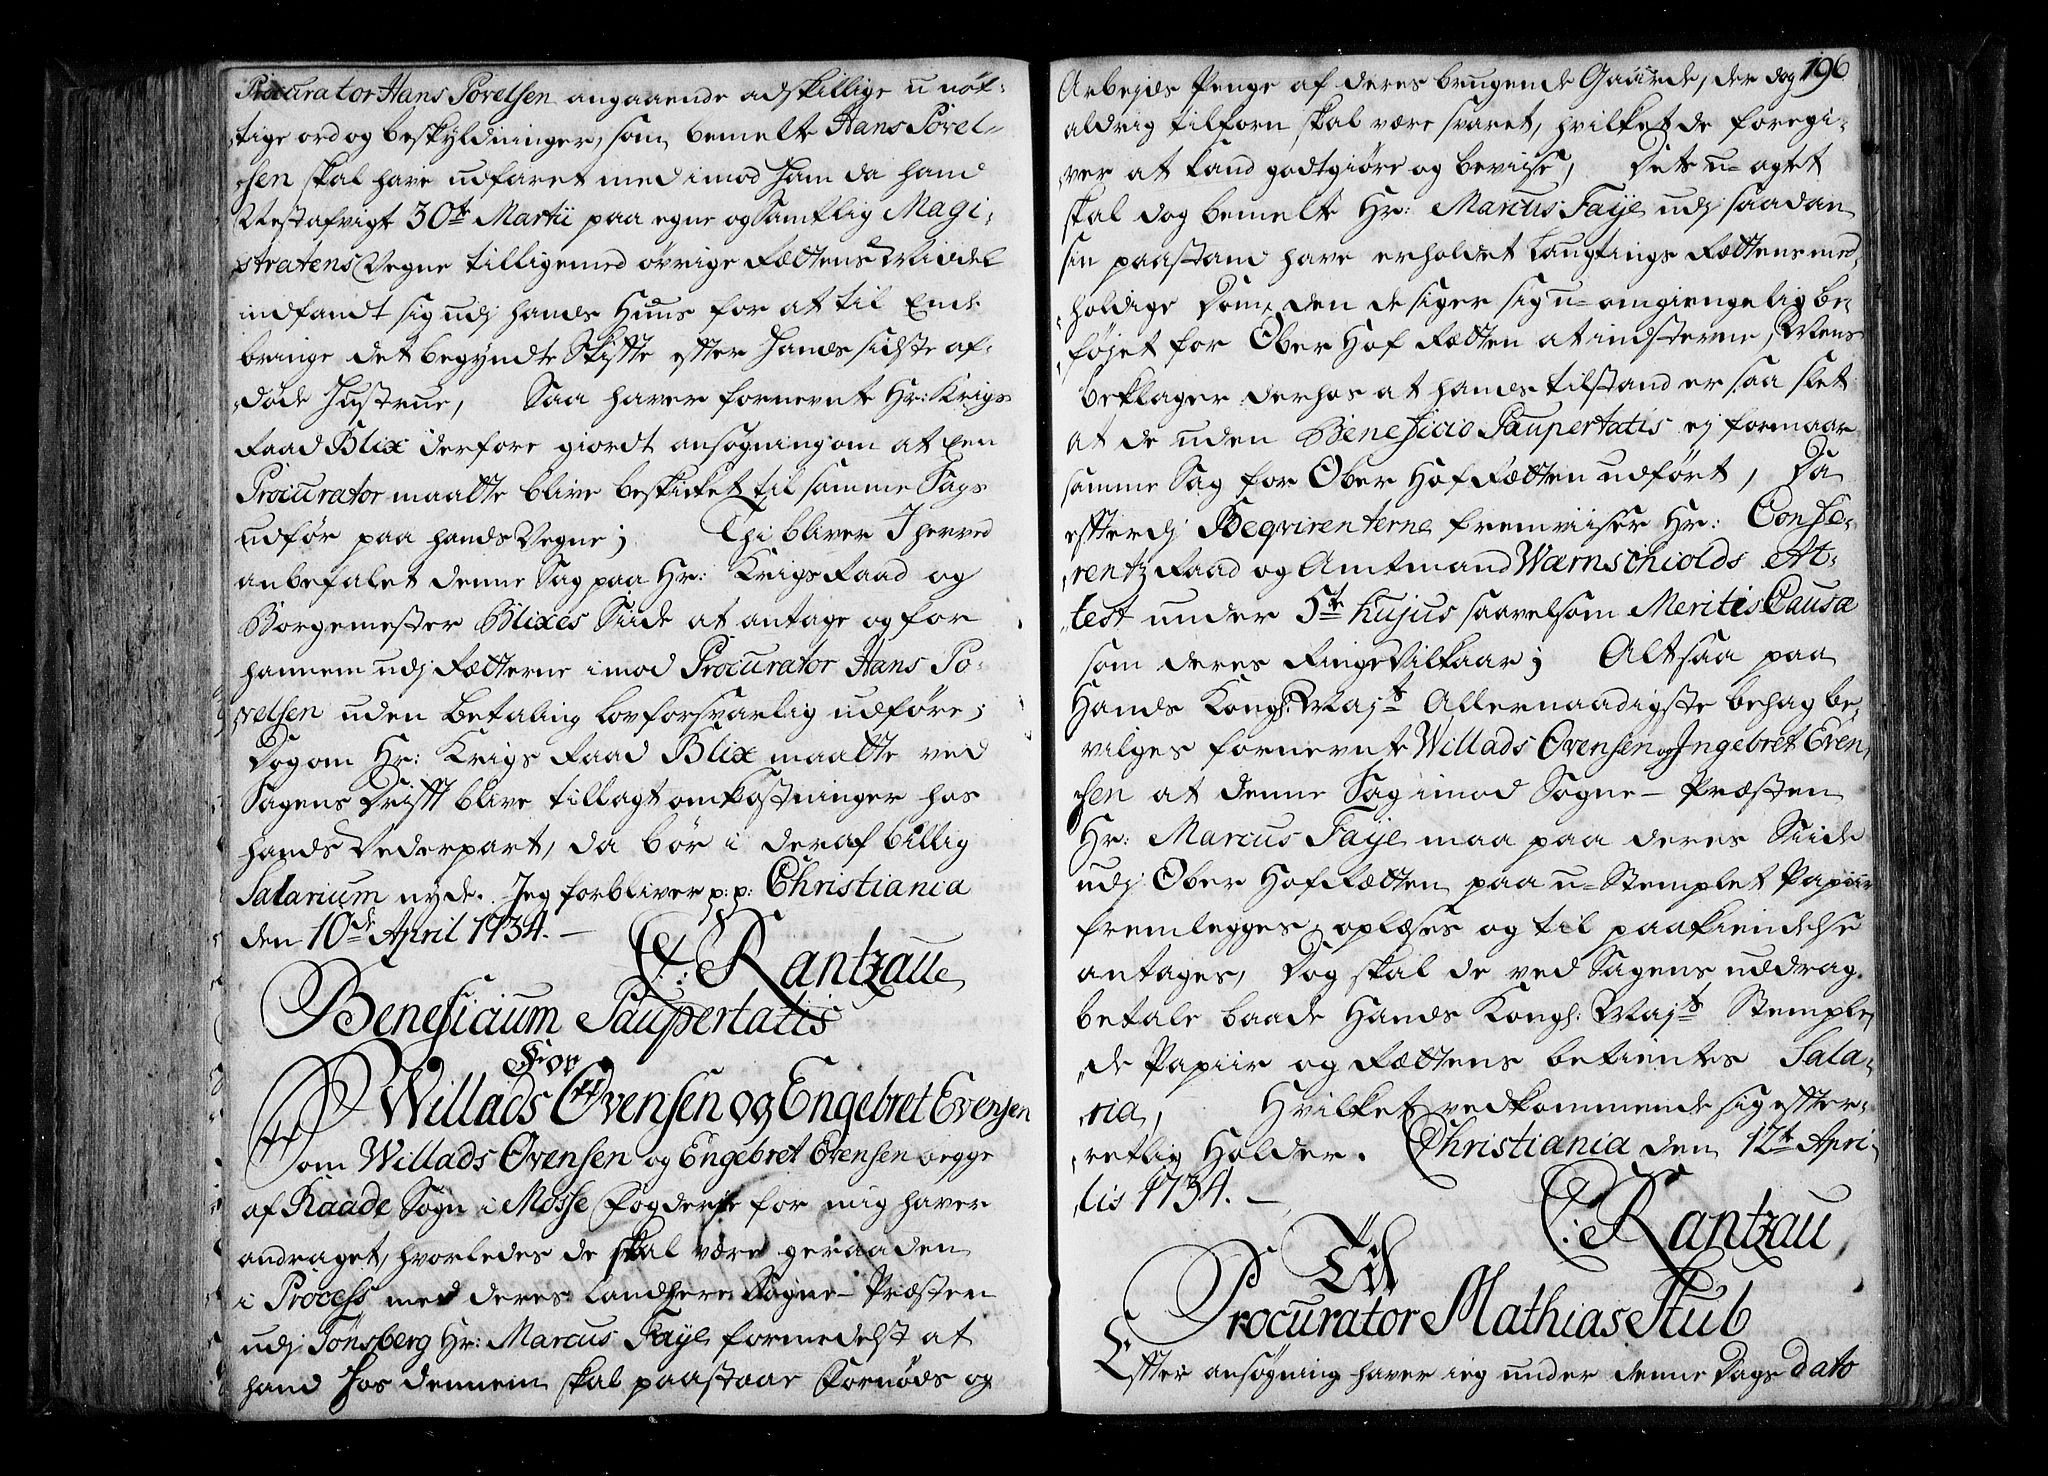 Procurator Hans Povelsen angaaende adskillige u-nöt-
tige ord og beskyldninger, som bemelte Hans Povel-
sen skal have udfaret med imod ham da hand
Nestafvigt 30te Martii paa egne og samtlig Magi-
stratens Vegne tilligemed övrige Rættens Middel
indfandt sig udj hands Huus for at til Ende
bringe det begyndte Skifte efter hands sidste af-
döde Hustrue, Saa haver fornevnte Hr: Krigs
Raad Blix derfore giordt ansögning om at Een
Procurator maatte blive beskicket til samme Sags
udför paa hands Vegne; Thi bliver I herved
anbefalet denne Sag paa Hr: Krigs Raad og
Borgemester Blixes Siide at antage og for
hannem udj Rætterne imod Procurator Hans Po-
velsen uden betaling lovforsvarlig udföre;
Dog om Hr: Krigs Raad Blix maatte ved
Sagens Drift blive tillagt omkostninger hos
hands Vederpart, da bör i deraf billig
Salarium nyde. Jeg forbliver p: p: Christiania
den 10de April 1734.—
C: Rantzau
Beneficium Paupertatis
For
Willads Ovensen og Engebret Evensen
Som Willads Ovensen og Engebret Evensen begge
af Raade Sogn i Mosse Fogderie for mig haver
andraget, hvorledes de skal være geraaden
i Process med deres Landherre Sogne-Præsten
udj Tönsberg Hr: Marcus Faije formedelst at
hand hos dennem skal paastaae Fornöds og
196
Arbejds Penge af deres brugende Gaarde, der dog
aldrig tilforn skal være svaret, hvilket de foregi-
ver at kand godtgiöre og bevise, Dets u-agtet
skal dog bemelte Hr: Marcus Faije udj saadan
sin paastand have erholdet Laugtings Rættens med-
holdige Dom, den de siger sig u-omgiengelig be-
föjet for Ober Hof Rætten at indstevne, Mens
beklager derhos at hands tilstand er saa slet
at de uden Beneficio Paupertatis ej formaar
samme Sag for Ober Hof Rætten udfört, Da
efterdj Reqvirenterne fremviiser Hr: Confe-
rentz Raad og Amtmand Wærnschiolds At-
test under 5te hujus saavelsom Meritis Causæ
som deres Ringe Vilkaar; Altsaa paa
Hands Kongl: Majts Allernaadigste behag be-
vilges fornevnte Willads Ovensen og Ingebret Even-
sen at denne Sag imod Sogne-Præsten
Hr: Marcus Faije maa paa deres Siide
udj Ober Hof Rætten paa u-Stemplet Papiir
fremlegges, oplæses og til paakiendelse
antages, Dog skal de ved Sagens uddrag
betale baade Hands Kongl: Majts Stemple-
de Papiir og Rættens betientes Sala-
ria, Hvilket vedkommende sig efter-
retlig Holder. Christiania den 12te Apri-
lis 1734.—
C: Rantzau
Til
Procurator Mathias Stub
Efter ansögning haver ieg under denne Dags Dato